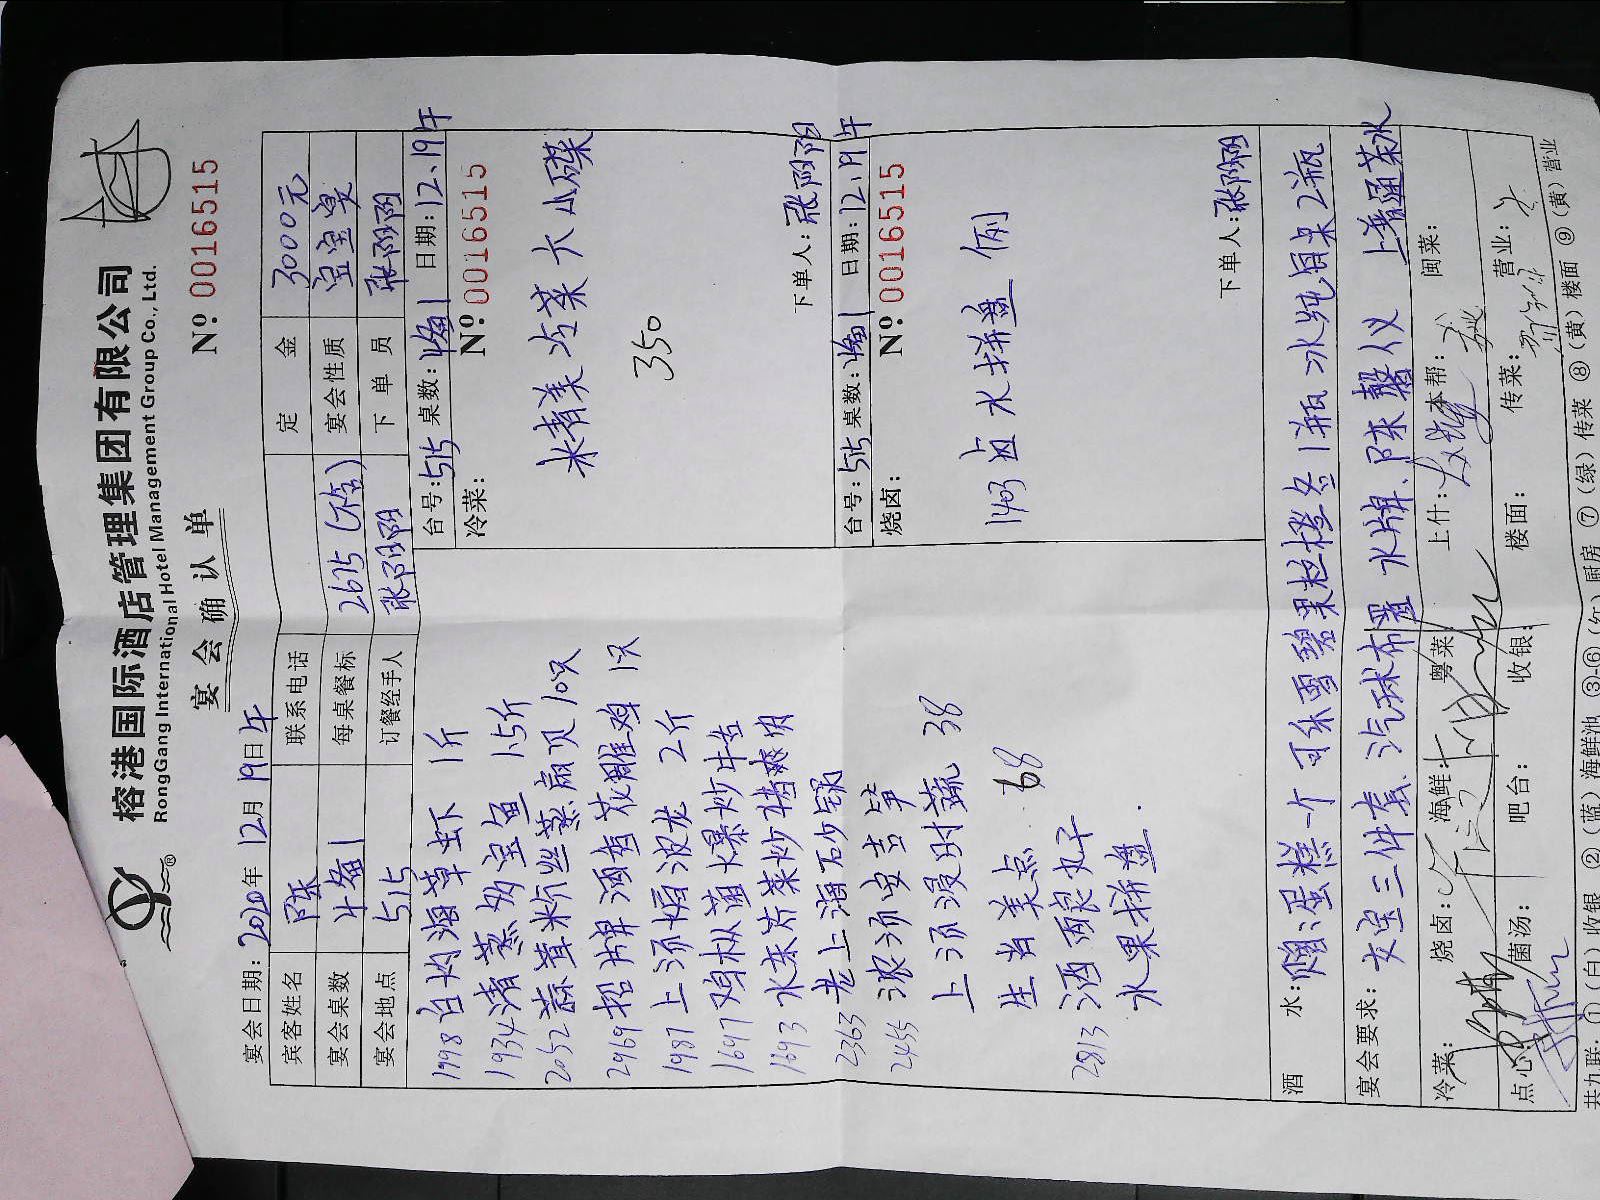 榕港国际酒店管理集团有限公司
RongGang International Hotel Management Group Co., Ltd.
宴会确认单
宴会日期:2020年12月19日午
Nº 0016515
宾客姓名 陈 联系电话 定金 3000元
宴会桌数 1备1 每桌餐标 2675(不含) 宴会性质 宝宝宴
宴会地点 515 订餐经手人 张阳阳 下单员 张阳阳
1998 白灼海草虾 1斤
1934 清蒸多宝鱼 1.5斤
2052 蒜茸粉丝蒸扇贝 10只
2969 招牌酒香花雕鸡 1只
1987 上汤焗波龙 2斤
1697 鸡枞菌爆炒牛
1693 水东芥菜炒猪爽肉
2363 老上海石砂锅
2455 浓汤安吉笋
上汤浸时蔬 38
生肖美点 68
2813 酒酿丸子
水果拼盘.
台号:515 桌数:1备1 日期:12.19午
冷菜:
Nº 0016515
精美冷菜六小碟
350
下单人:张阳阳
台号:515 桌数:1备1 日期:12.19午
烧卤:
Nº 0016515
1403 卤水拼盘 例
下单人:张阳阳
酒水: 蛋糕一个 可乐雪碧果粒橙各1瓶 冰纯每桌2瓶
宴会要求: 女宝三件套 汽球布置 水牌.陈馨仪 上普通茶水
冷菜: 烧卤: 海鲜: 粤菜: 上什: 本帮: 闽菜:
点心: 菌汤: 吧台: 收银: 楼面: 传菜: 营业:
共九联:①(白)收银 ②(蓝)海鲜池 ③-⑥(红)厨房 ⑦(绿)传菜 ⑧(黄)楼面 ⑨(黄)营业